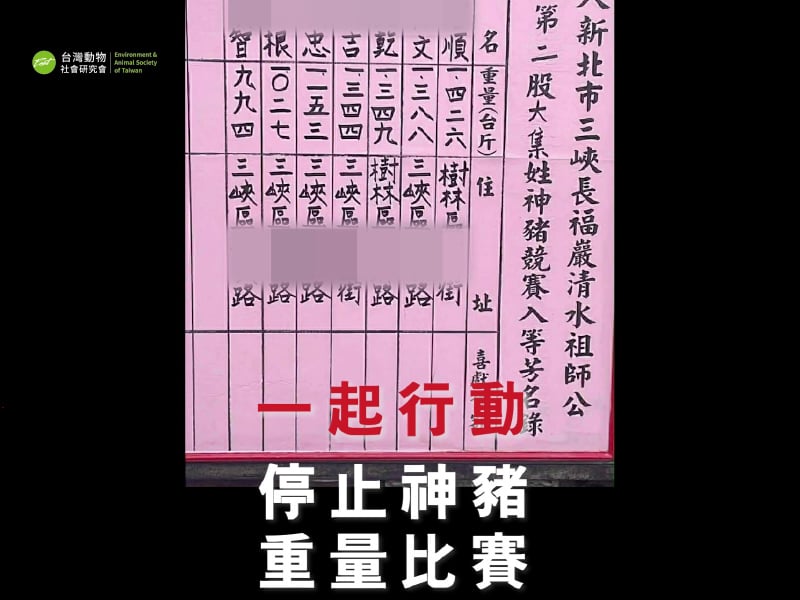 台灣動物
社會研究會
Environment &
Animal Society
of Taiwan
新北市三峽長福巖清水祖師公
第二股大集姓神豬競賽入等芳名錄
名 重量(台斤) 住 址 喜戲
順 一四二六 樹林區 街
文 一三八八 三峽區 路
乾 一三四九 樹林區 路
吉 一三四四 三峽區 街
忠 一一五三 三峽區 路
根 一〇二七 三峽區 路
智 九九四 三峽區 路
一起行動
停止神豬
重量比賽